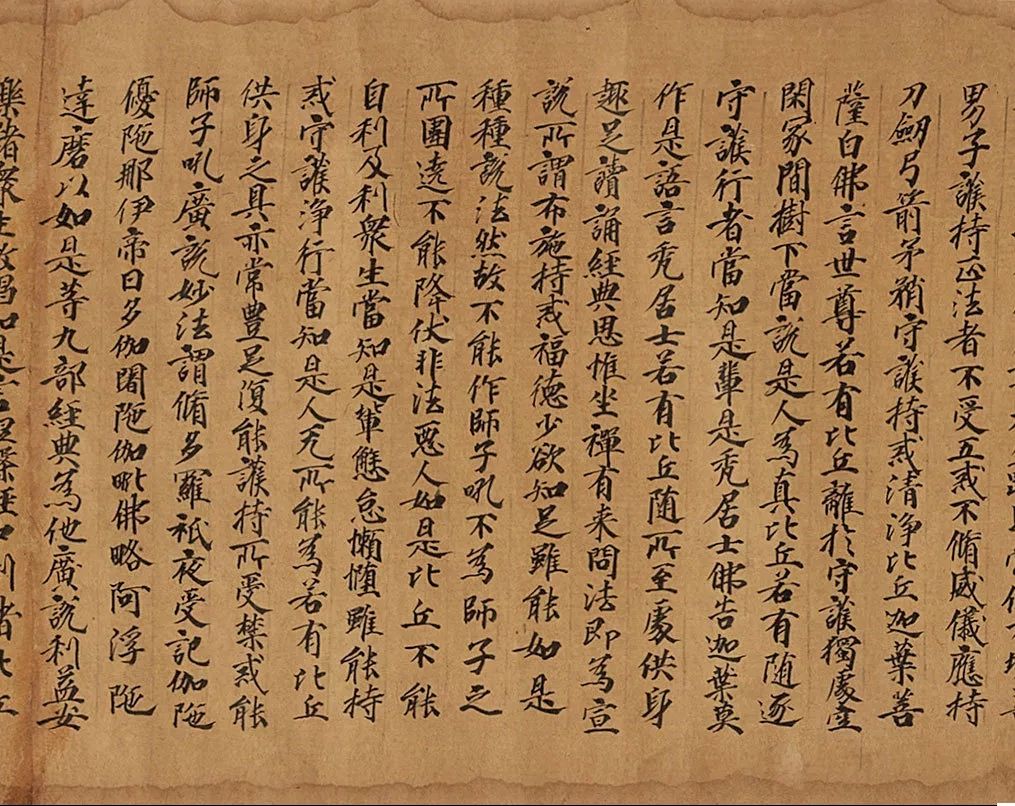 男子護持正法者不受五戒不脩威儀應持
刀劒弓箭矛矟守護持戒清淨比丘迦葉菩
薩白佛言世尊若有比丘離於守護獨處空
閑冢間樹下當說是人為真比丘若有随逐
守護行者當知是輩是禿居士佛告迦葉莫
作是語言禿居士若有比丘随所至處供身
趣足讀誦經典思惟坐禪有来問法即為宣
說所謂布施持戒福德少欲知足雖能如是
種種說法然故不能作師子吼不為師子之
所圍遶不能降伏非法惡人如是比丘不能
自利及利衆生當知是輩懈怠懶惰雖能持
戒守護淨行當知是人无所能為若有比丘
供身之具亦常豊足復能護持所受禁戒能
師子吼廣說妙法謂脩多羅祇夜受記伽陁
優陁那伊帝曰多伽闍陁伽毗佛略阿浮陁
達磨以如是等九部經典為他廣說利益安
樂諸衆生故唱如是言涅槃經中制諸比丘